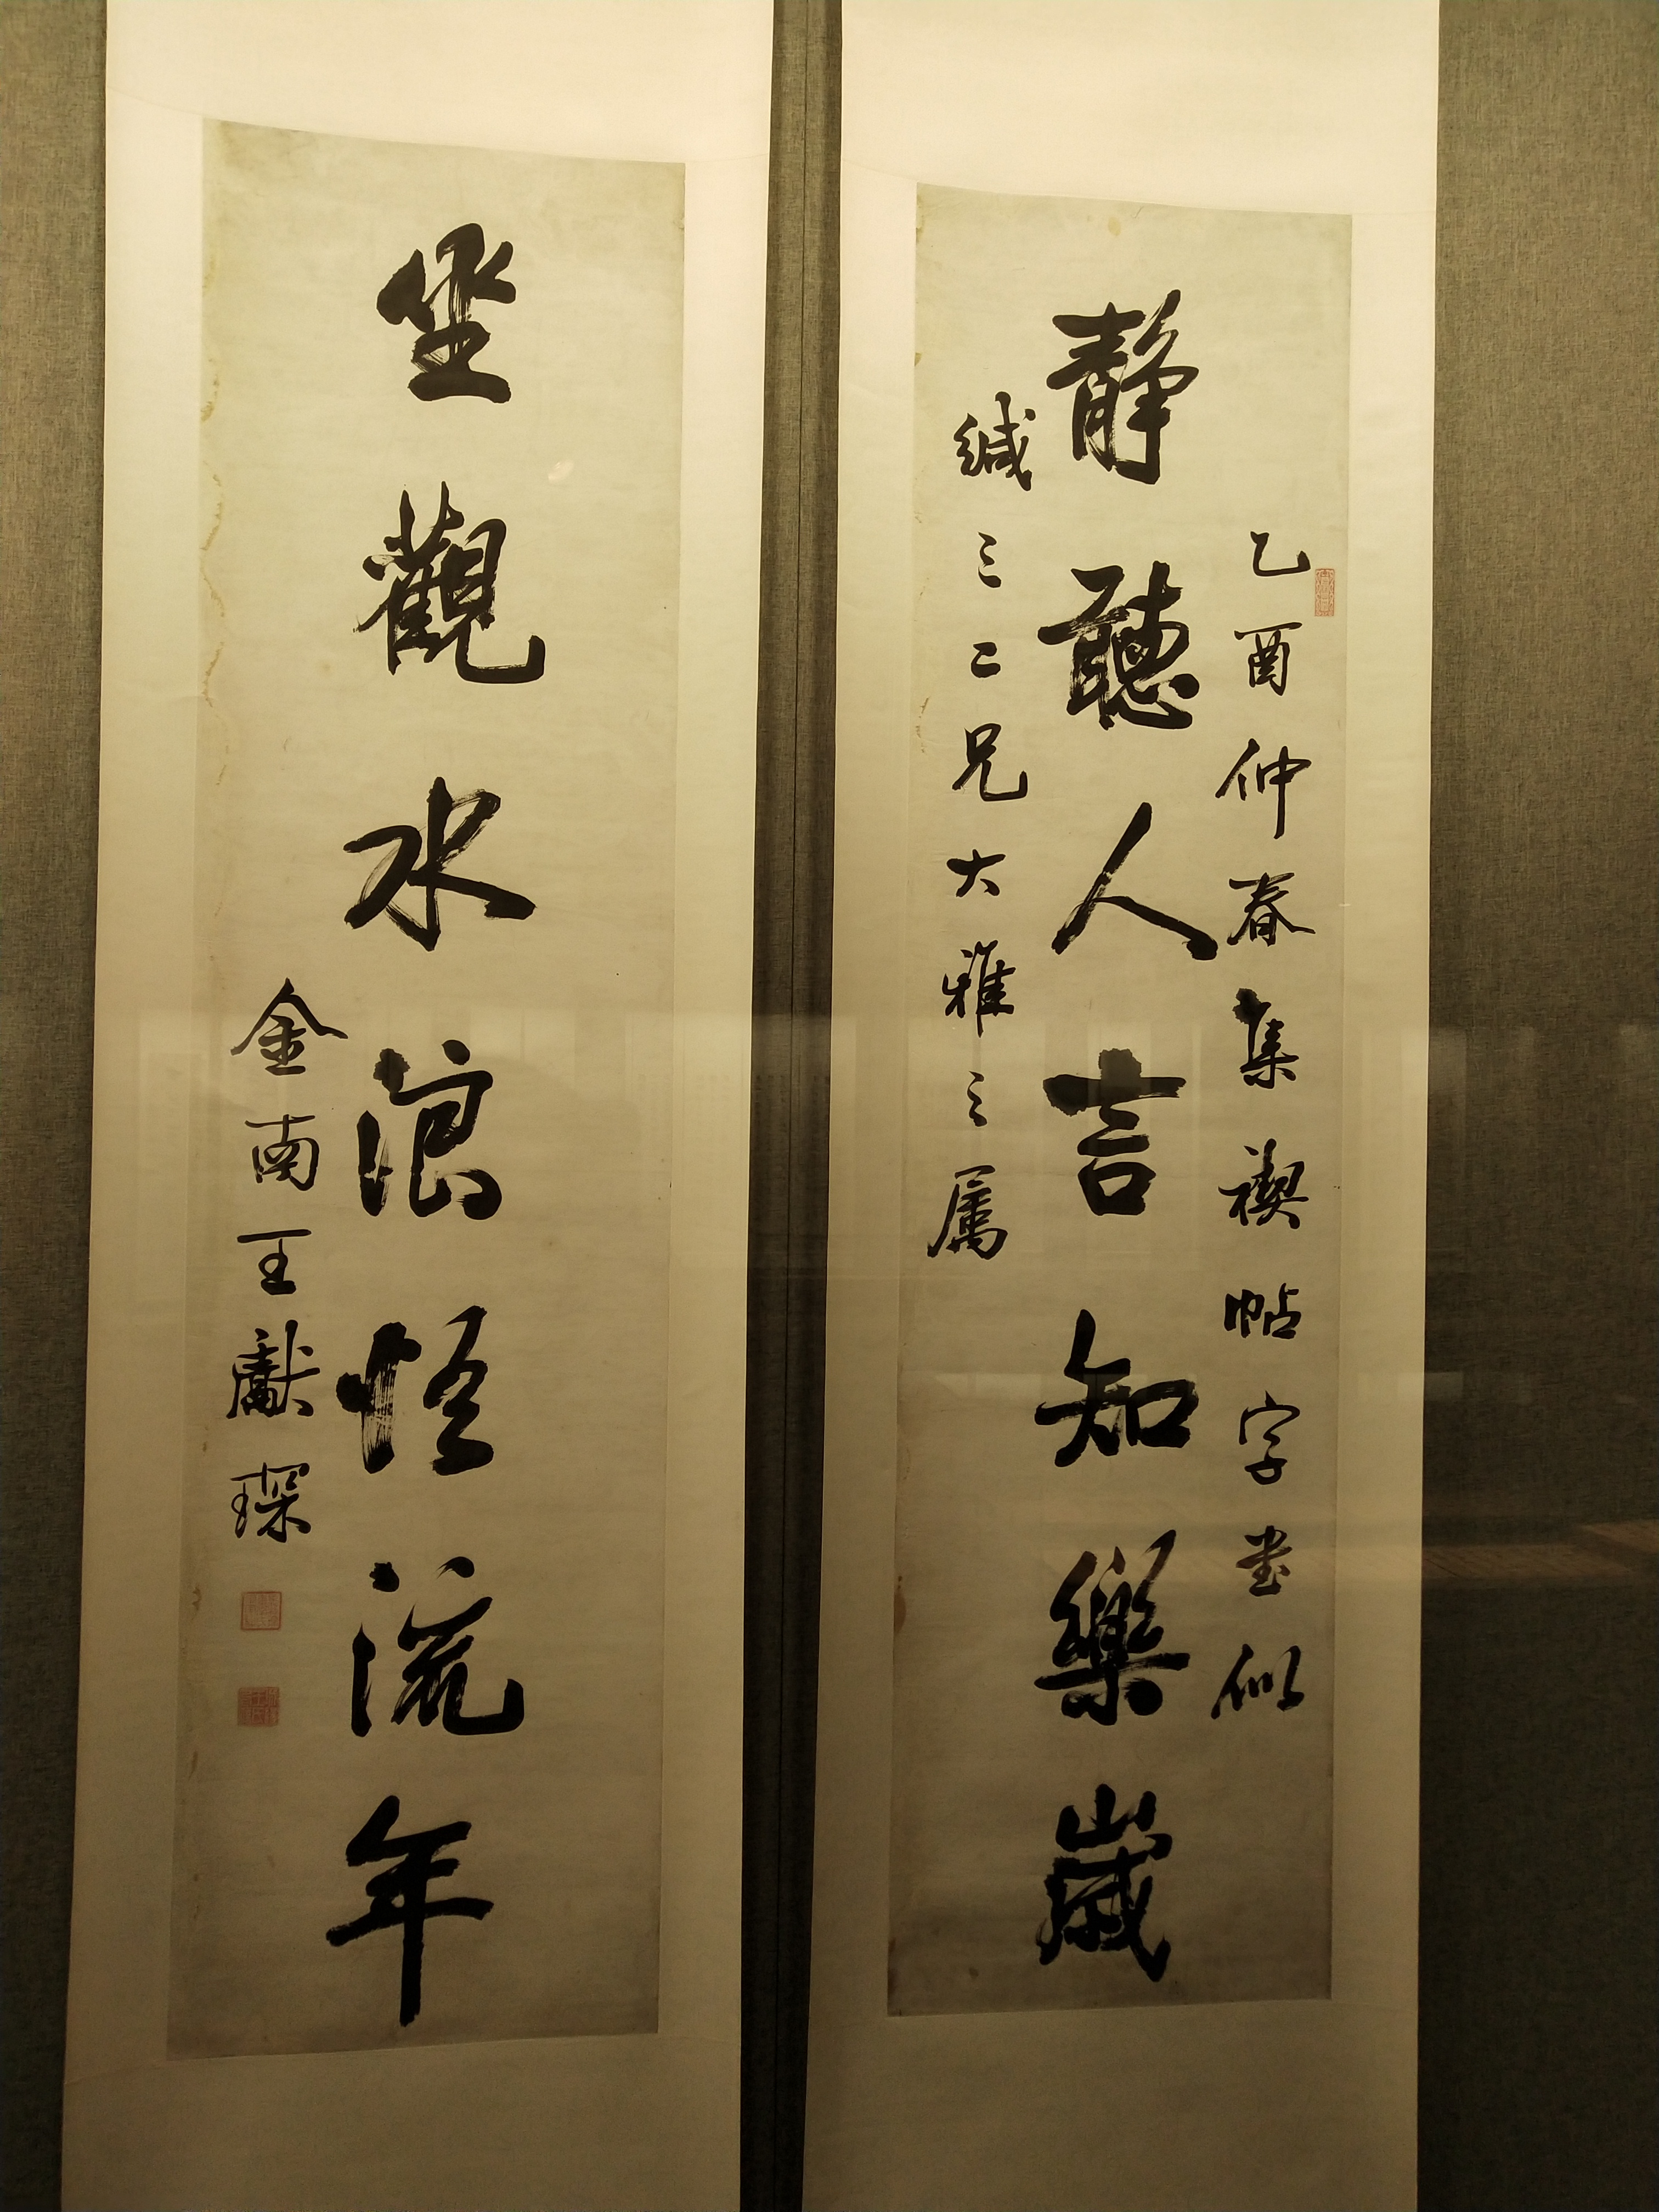 乙酉仲春集禊帖字書似
静聽人言知樂歲
緘三二兄大雅之屬
坐觀水浪悟流年
金南王獻琛